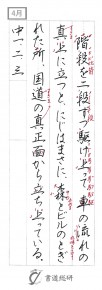 4月
階段を二段ずつ駆け上って車の流れの
真上に立つと、にじはまさに、森とビルのとぎ
れた所、国道の真正面から立ち上っている。
中一二三
書道総研